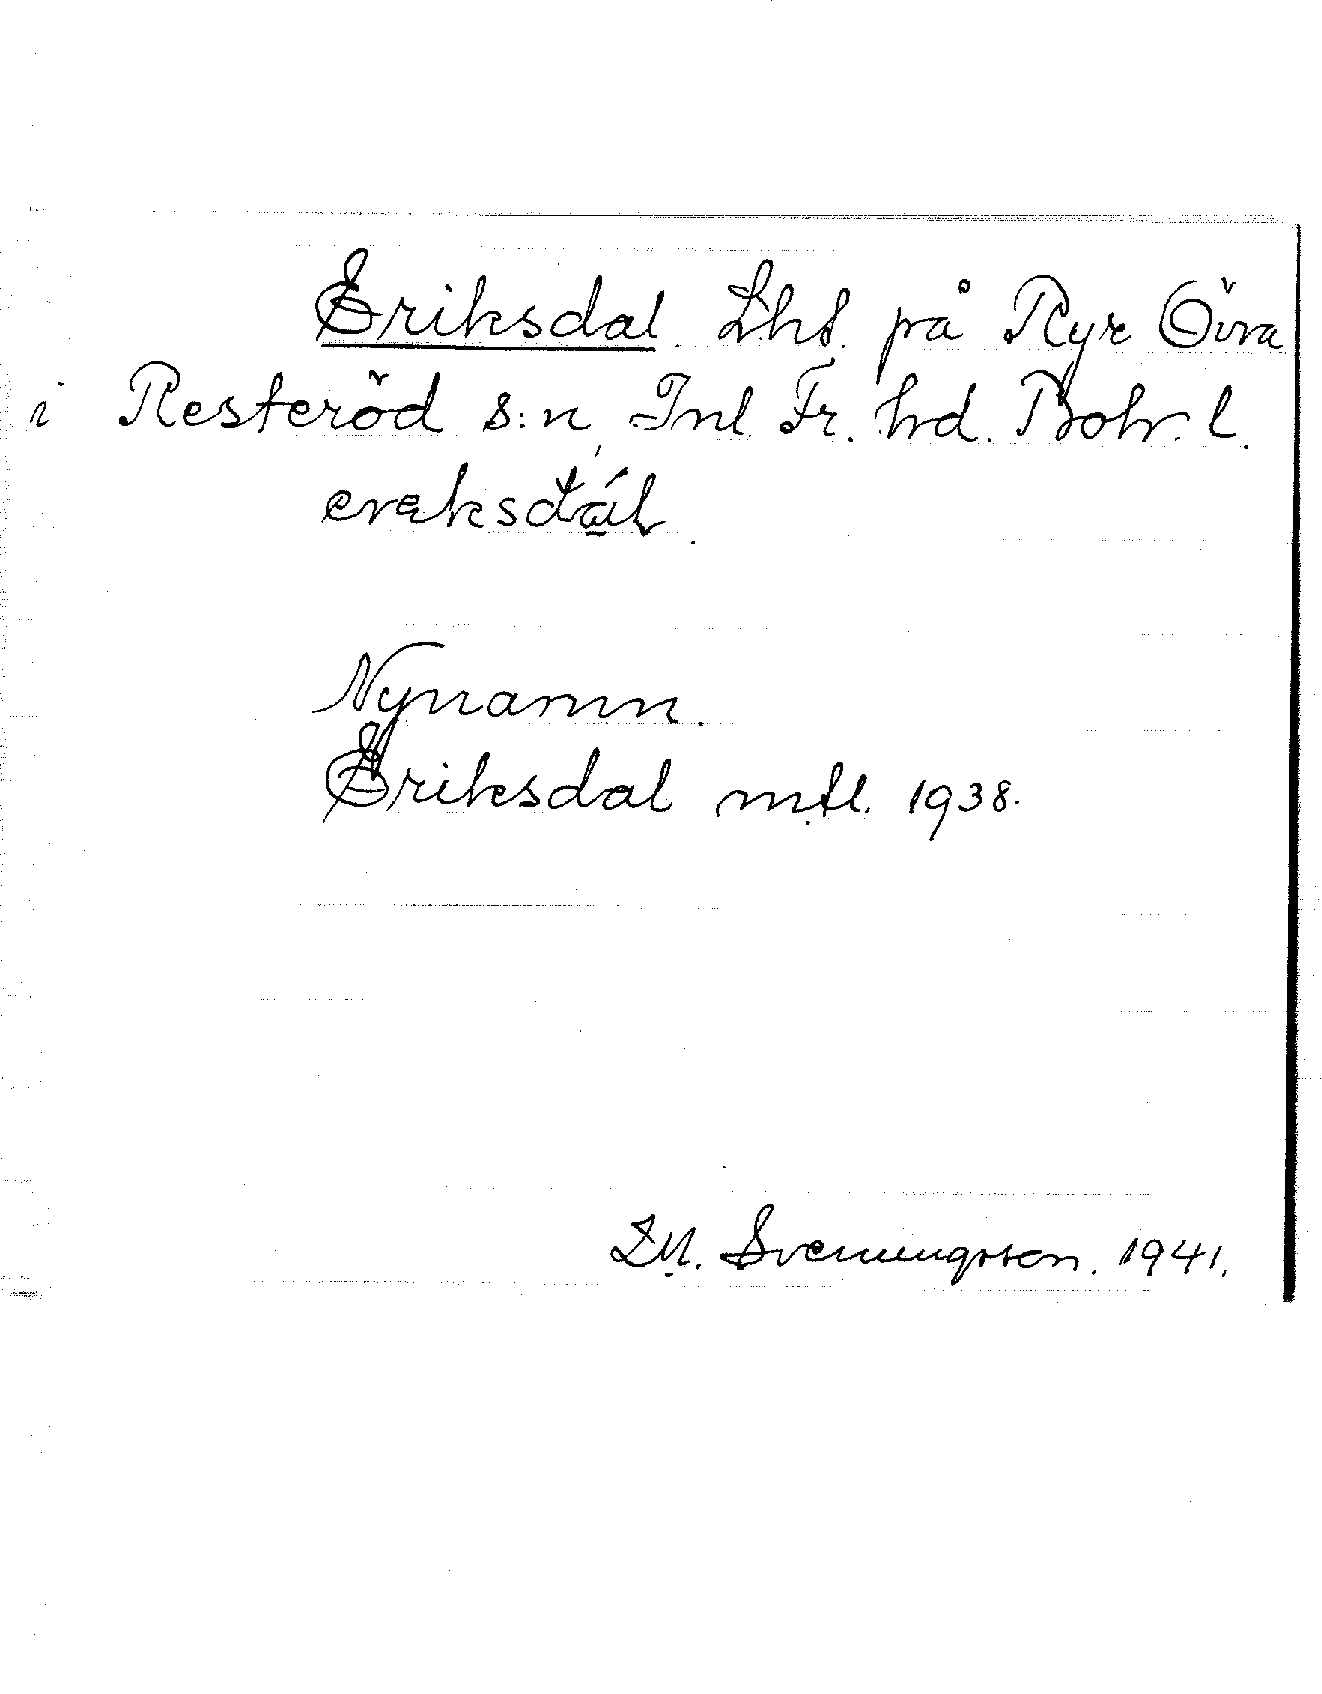 Eriksdal Lht. på Ryr Övra
i Resteröd s:n, Inl Fr. hd. Boh. l.
Nynamn.
Eriksdal mtl. 1938.
Svenungsson. 1941.